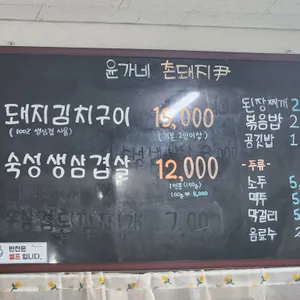 윤가네 촌돼지尹
돼지김치구이 15,000
(100% 생삼겹 사용) (기본 2인이상)
숙성생삼겹살 12,000
1인분 (150g)
100g = 8,000
7,000
된장찌개 2
볶음밥 2
공깃밥 1
-주류-
소주
맥주
막걸리
음료수 2
반찬은
셀프 입니다.